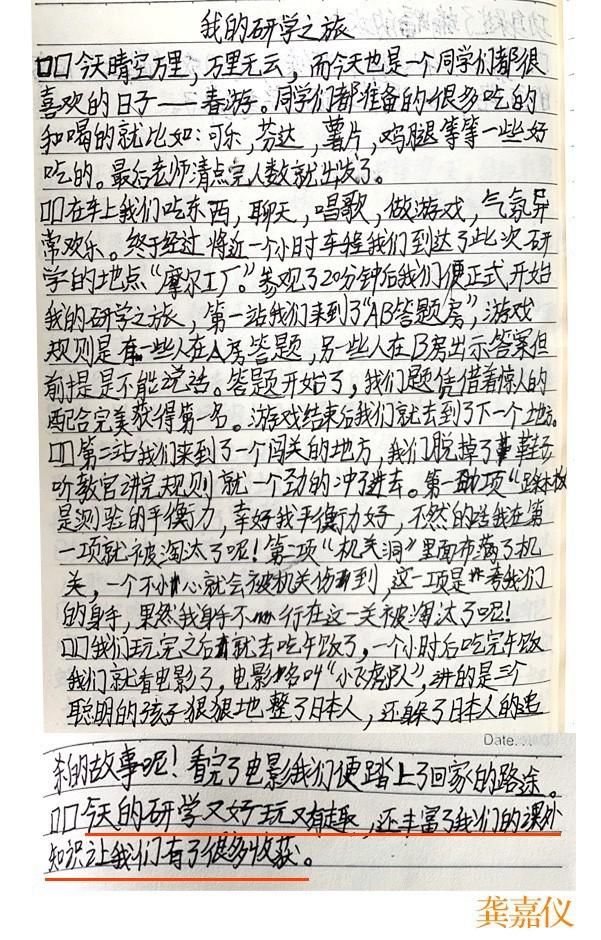 我的研学之旅
今天晴空万里，万里无云，而今天也是一个同学们都很
喜欢的日子——春游。同学们都准备的很多吃的
和喝的就比如：可乐，芬达，薯片，鸡腿等等一些好
吃的。最后老师清点完人数就出发了。
在车上我们吃东西，聊天，唱歌，做游戏，气氛异
常欢乐。终于经过将近一个小时车程我们到达了此次研
学的地点“摩尔工厂”。参观了20分钟后我们便正式开始
我的研学之旅，第一站我们来到了“AB答题房”，游戏
规则是有一些人在A房答题，另一些人在B房出示答案但
前提是不能说话。答题开始了，我们题凭借着惊人的
配合完美获得第一名。游戏结束后我们就去到了下一个地方。
第二站我们来到了一个闯关的地方，我们脱掉了鞋子
听教官讲完规则就一个劲的冲了进去。第一项“
是测验的平衡力，幸好我平衡力好，不然的话我在第
一项就被淘汰了呢！第二项“机关洞”里面布满了机
关，一个不小心就会被机关伤到，这一项是考我们
的身手，果然我身手不行在这一关被淘汰了呢！
我们玩完之后就去吃午饭了，一个小时后吃完午饭
我们就看电影了，电影名叫“小飞虎队”，讲的是三个
聪明的孩子狠狠地整了日本人，还躲了日本人的追
Date.
杀的故事呢！看完了电影我们便踏上了回家的路途。
今天的研学又好玩又有趣，还丰富了我们的课外
知识让我们有了很多收获。
龚嘉仪